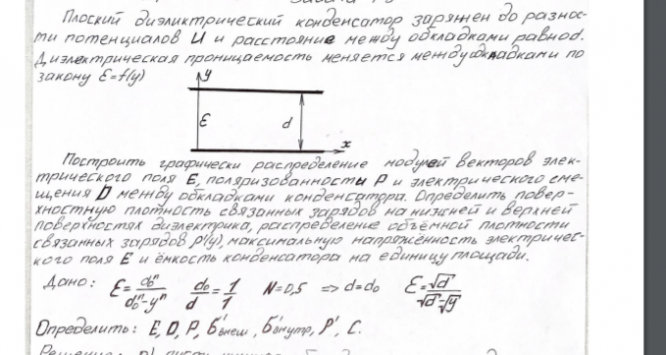 Плоский диэлектрический конденсатор заряжен до разнос-
ти потенциалов U и расстояние между обкладками равно d.
Диэлектрическая проницаемость меняется между обкладками по
закону Ɛ=f(y)
y
Ɛ
d
x
Построить графически распределение модулей векторов элек-
трического поля E, поляризованности P и электрического сме-
щения D между обкладками конденсатора. Определить повер-
хностную плотность связанных зарядов на нижней и верхней
поверхностях диэлектрика, распределение объёмной плотности
связанных зарядов ρ'(y), максимальную напряжённость электричес-
кого поля E и ёмкость конденсатора на единицу площади.
Дано: Ɛ = d₀ⁿ/(d₀ⁿ-yⁿ) d₀/d = 1/1 N=0,5 => d=d₀ Ɛ = √d/(√d-√y)
Определить: E, D, P, б'внеш, б'внутр, P', C.